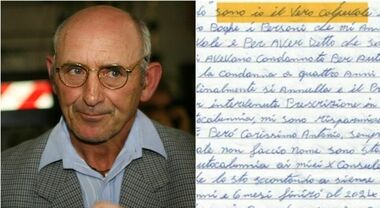 sono io il Vero colpevole
Boghe i Personi che mi Ann
vale e Per AVer Detto che se
Avevano Condannato Per Aut
la Condanna a quattro Anni
malmente si Annulla e il Pr
intervenuta Prescrizione in
calunnia, mi sono risparmia
Però Carissimo Antonio, sem
ale non faccio Nome sono sta
utocalunnia ai miei X Consule
lo sto scontando a siense
anni e 6 mesi finirò al 2024